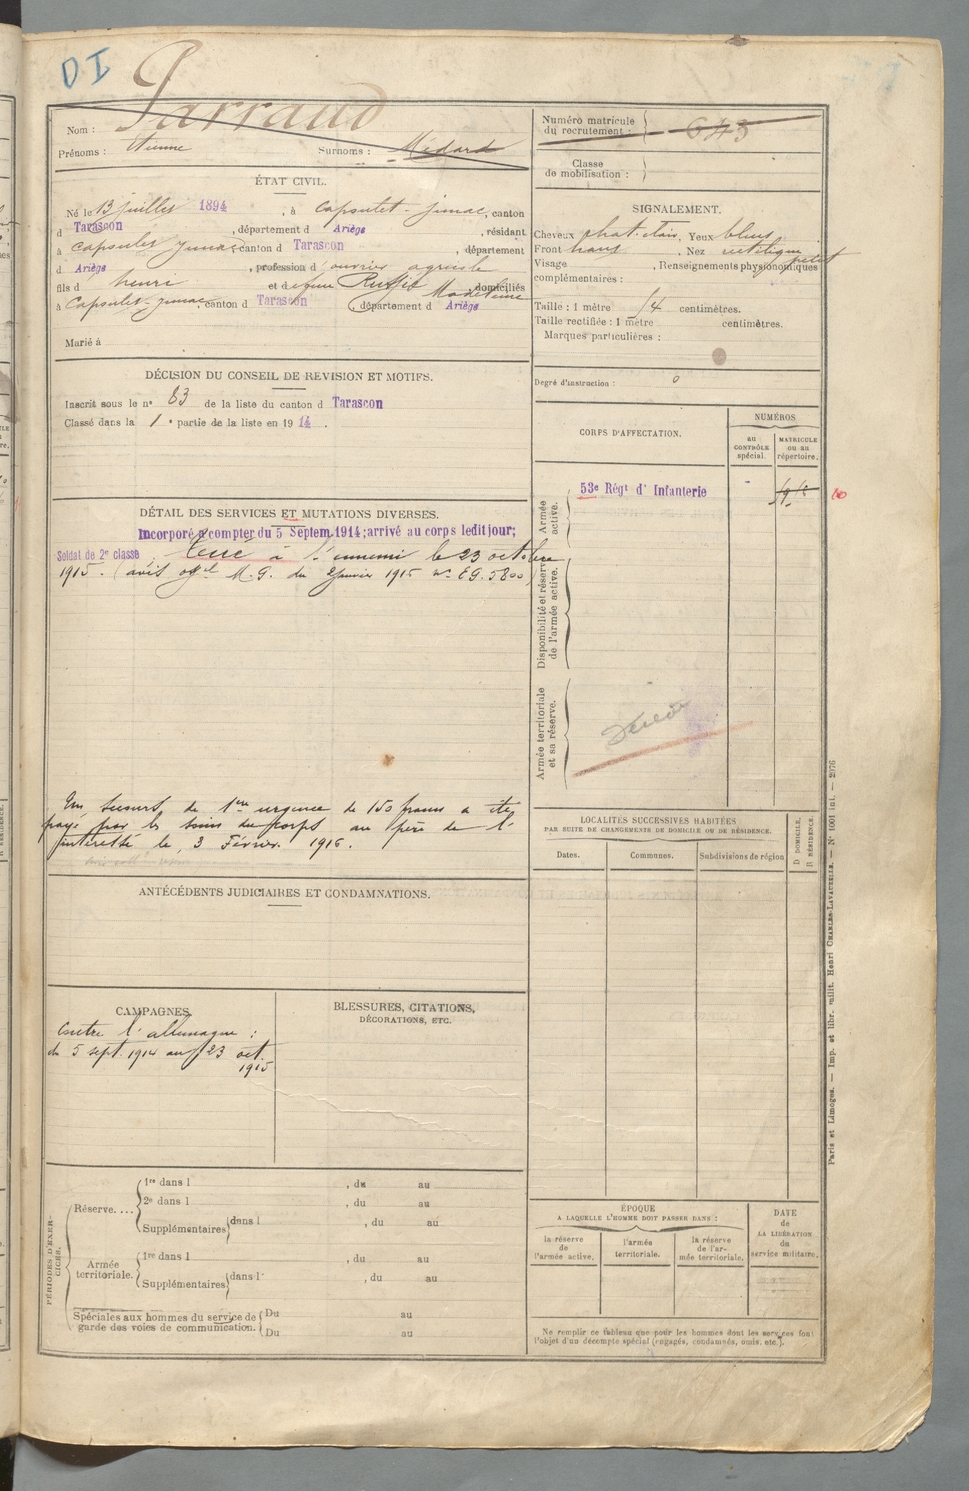 DI
Nom : Parraud
Prénoms : Etienne Surnoms : Médard
ÉTAT CIVIL.
Né le 13 juillet 1894, à Capoulet-Junac, canton
d Tarascon, département d Ariège, résidant
à Capoulet Junac canton d Tarascon, département
d Ariège, profession d ouvrier agricole
fils d henri et d Madeleine domiciliés
à Capoulet-Junac canton d Tarascon département d Ariège
Marié à
DÉCISION DU CONSEIL DE REVISION ET MOTIFS.
Inscrit sous le n° 83 de la liste du canton d Tarascon
Classé dans la 1e partie de la liste en 1914.
DÉTAIL DES SERVICES ET MUTATIONS DIVERSES.
Incorporé à compter du 5 Septem. 1914; arrivé au corps ledit jour;
Soldat de 2e classe Tué à l'ennemi le 23 octobre
1915. (avis offel M.G. du 2 janvier 1915 n° EG. 5800)
Un secours de 1ère urgence de 150 francs a été
payé par les soins du corps au père de l'
intéressé le, 3 Février 1916.
ANTÉCÉDENTS JUDICIAIRES ET CONDAMNATIONS.
CAMPAGNES
Contre l'allemagne :
du 5 sept. 1914 au 23 oct.
1915
BLESSURES, CITATIONS,
DÉCORATIONS, ETC.
PÉRIODES D'EXERCICES.
Réserve.... 1re dans l , du au
2e dans l , du au
Supplémentaires dans l , du au
Armée territoriale. 1re dans l , du au
Supplémentaires dans l , du au
Spéciales aux hommes du service de Du au
garde des voies de communication. Du au
Numéro matricule
du recrutement : 643
Classe
de mobilisation :
SIGNALEMENT.
Cheveux chat. clair, Yeux bleus
Front haut, Nez rectiligne
petit
Visage , Renseignements physionomiques
complémentaires :
Taille : 1 mètre 54 centimètres.
Taille rectifiée : 1 mètre centimètres.
Marques particulières :
Degré d'instruction : 0
CORPS D'AFFECTATION.
NUMÉROS
au
CONTRÔLE
spécial.
MATRICULE
ou au
répertoire.
Armée
active.
53e Régt d' Infanterie
Disponibilité et réserve
de l'armée active.
Armée territoriale
et sa réserve.
LOCALITÉS SUCCESSIVES HABITÉES
PAR SUITE DE CHANGEMENTS DE DOMICILE OU DE RÉSIDENCE.
Dates.
Communes.
Subdivisions de région
D DOMICILE,
R RÉSIDENCE.
ÉPOQUE
A LAQUELLE L'HOMME DOIT PASSER DANS :
la réserve
de
l'armée active.
l'armée
territoriale.
la réserve
de l'ar-
mée territoriale.
DATE
de
LA LIBÉRATION
du
service militaire.
Ne remplir ce tableau que pour les hommes dont les services font
l'objet d'un décompte spécial (engagés, condamnés, omis, etc.).
Paris et Limoges. — Imp. et libr. milit. Henri CHARLES-LAVAUZELLE. — N° 1001 int. — 2976